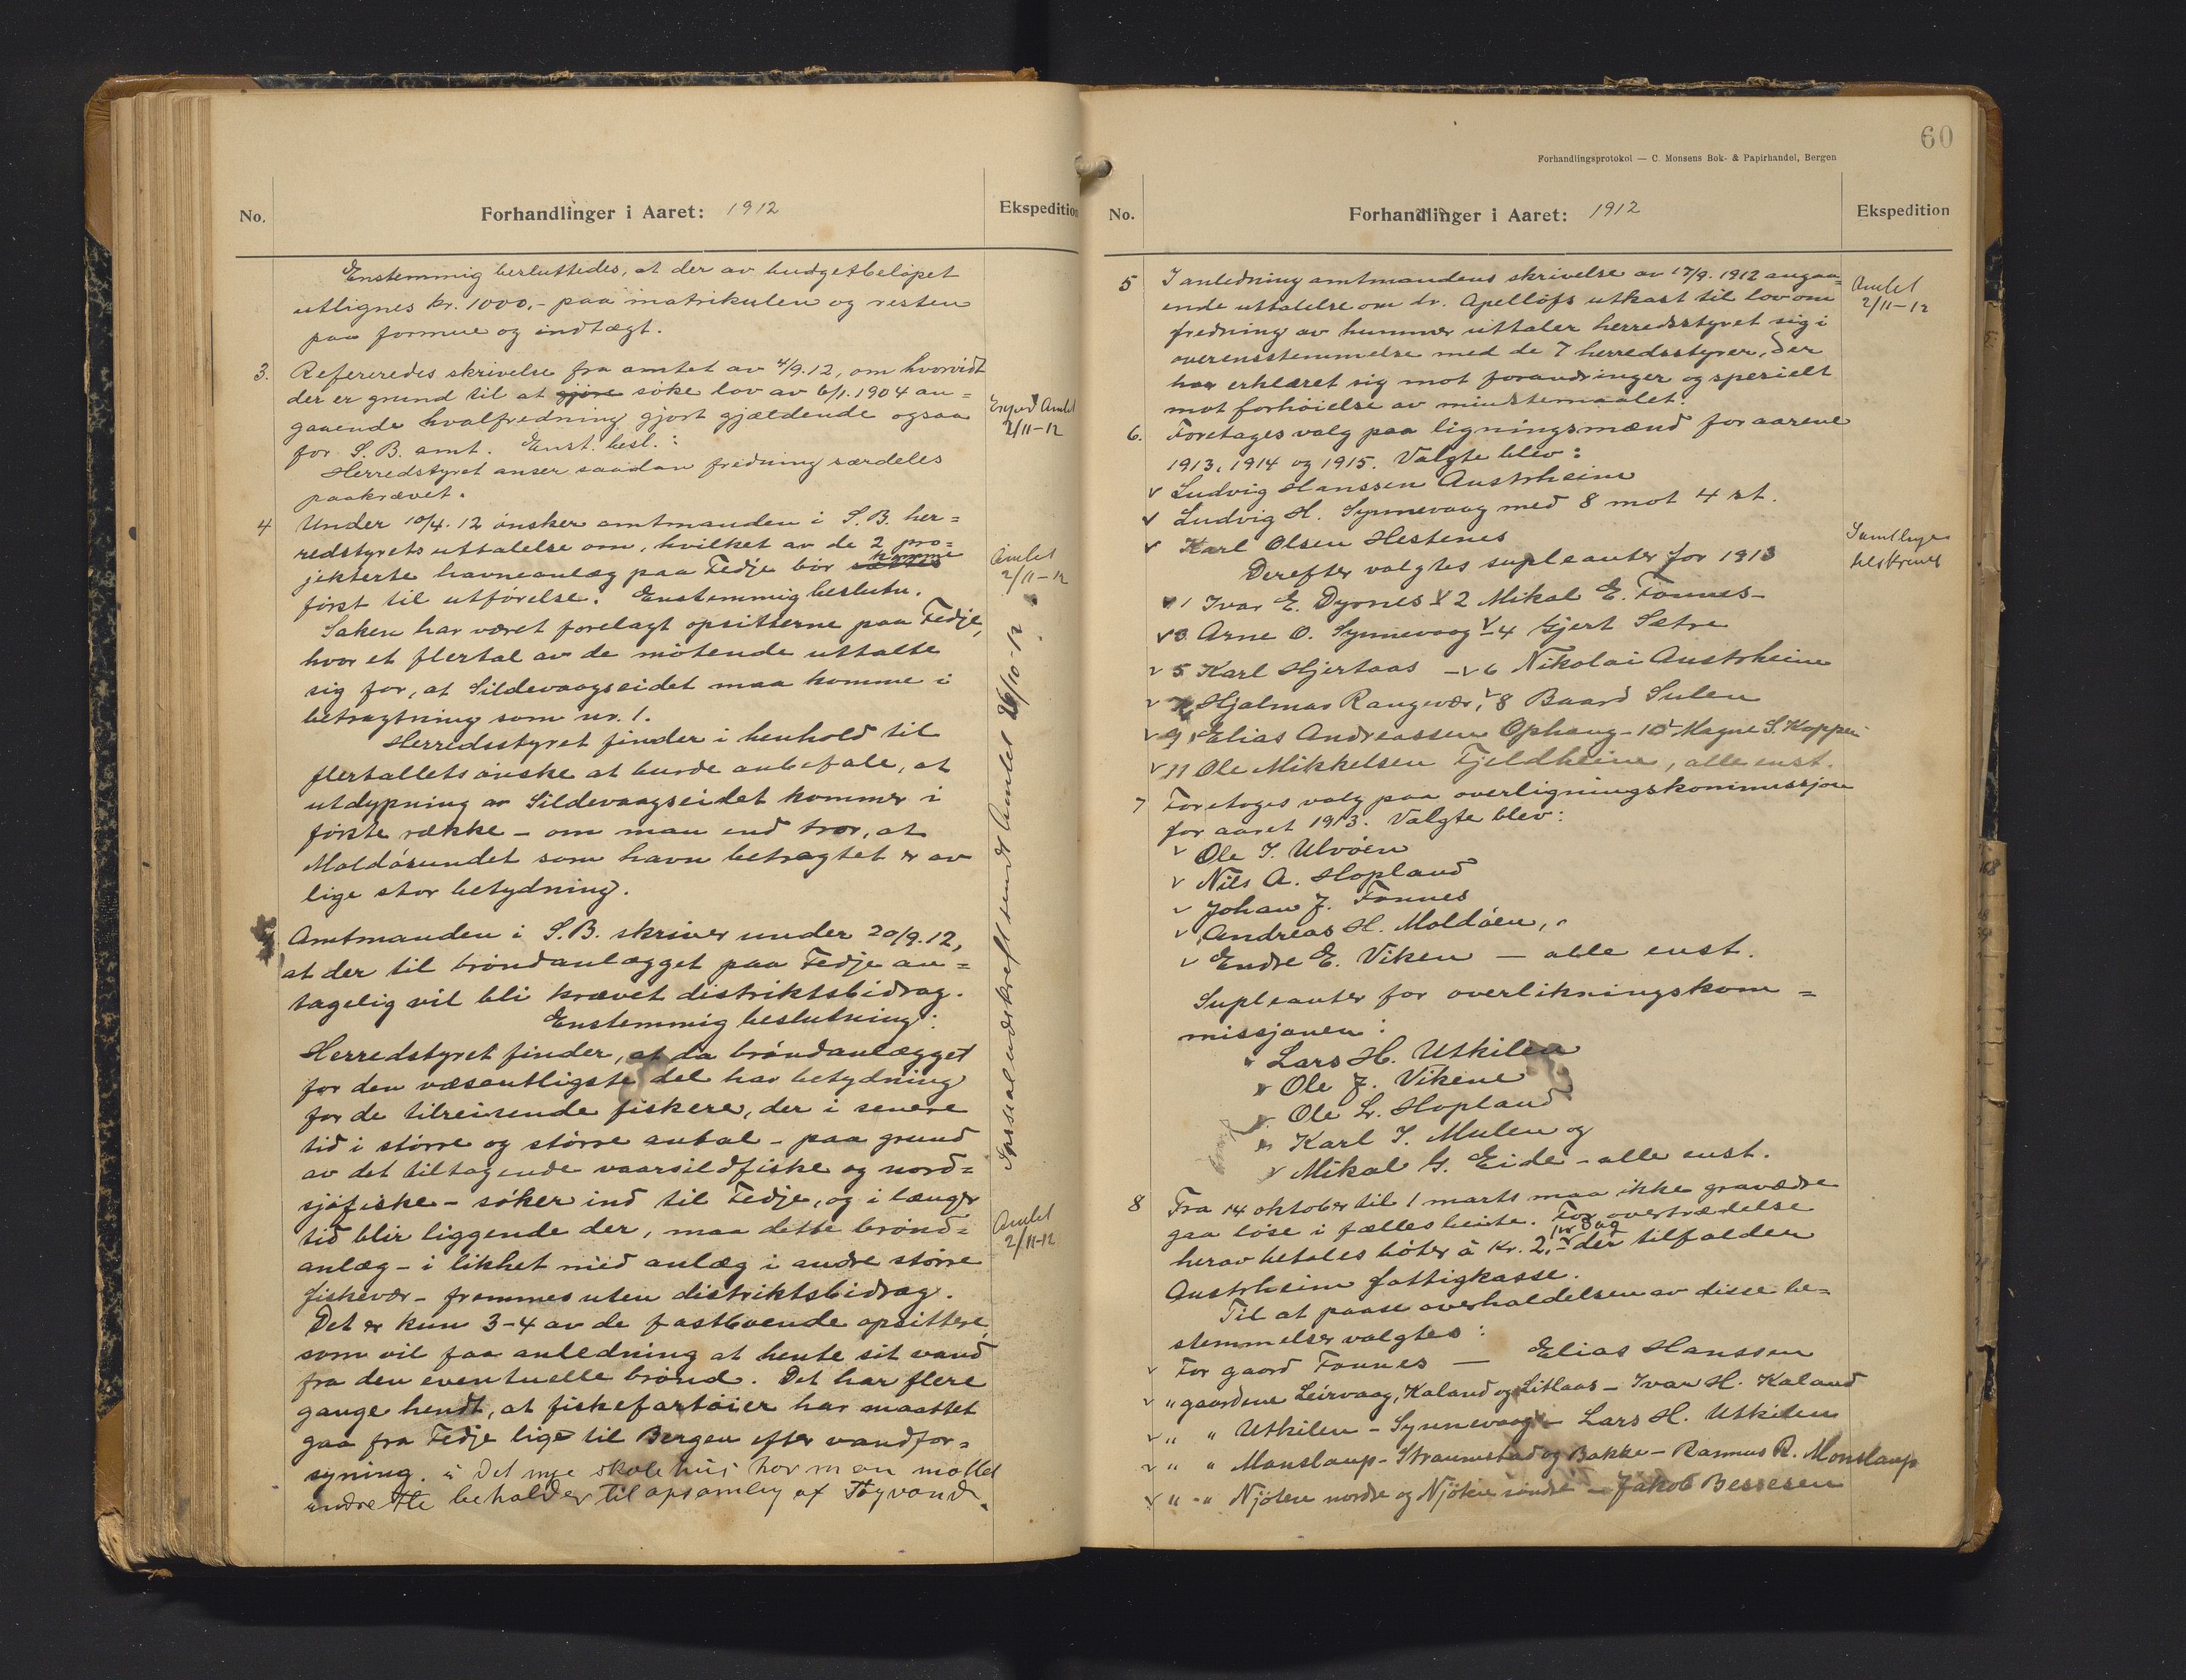 No.
Forhandlinger i Aaret: 1912
Ekspedition
Enstemmig besluttedes, at der av budgetbeløpet
utlignes kr. 1000,- paa matrikulen og resten
paa formue og indtægt.
3. Refereredes skrivelse fra amtet av 4/9.12, om hvorvidt
der er grund til at gjøre søke lov av 6/1.1904 an=
gaaende hvalfredning gjort gjældende ogsaa
for S. B. amt. Enst. besl.:
Herredstyret anser saadan fredning særdeles
paakrævet.
Amtet
2/11-12
4 Under 10/4.12 ønsker amtmanden i S. B. her=
redstyrets uttalelse om, hvilket av de 2 pro=
jekterte havneanlæg paa Fedje bør sættes komme
først til utførelse. Enstemmig beslutn.
Saken har været forelagt opsitterne paa Fedje,
hvor et flertal av de møtende uttalte
sig for, at Sildevaagseidet maa komme i
betragtning som nr. 1.
Herredsstyret finder i henhold til
flertallets ønske at burde anbefale, at
utdypning av Sildevaagseidet kommer i
første række - om man end tror, at
Moldøsundet som havn betragtet er av
lige stor betydning.
Amtet
2/11-12
Amtmanden i S. B. skriver under 20/9.12,
at der til brøndanlægget paa Fedje an=
tagelig vil bli krævet distriktsbidrag.
Enstemmig beslutning:
Herredstyret finder, at da brøndanlægget
for den væsentligste del har betydning
for de tilreisende fiskere, der i senere
tid i større og større antal - paa grund
av det tiltagende vaarsildfiske og nord=
sjøfiske - søker ind til Fedje, og i længer
tid blir liggende der, maa dette brønd=
anlæg - i likhet med anlæg i andre større
fiskevær - fremmes uten distriktsbidrag.
Det er kun 3-4 av de fastboende opsittere,
som vil faa anledning at hente sit vand
fra den eventuelle brønd. Det har flere
gange hendt, at fiskefartøier har maattet
gaa fra Fedje lige til Bergen efter vandfor=
syning. i Det nye skolehus har man mottet
indrette beholder til opsamling af Tagvand.
Amtet
2/11-12
utskrift sendt Amtet 26/10-12.
60
Forhandlingsprotokol — C. Monsens Bok- & Papirhandel, Bergen
No.
Forhandlinger i Aaret: 1912
Ekspedition
5 I anledning amtmandens skrivelse av 17/9.1912 angaa=
ende uttalelse om dr. Apelløfs utkast til lov om
fredning av hummer uttaler herredsstyret sig i
overensstemmelse med de 7 herredsstyrer, der
har erklæret sig mot forandringer og specielt
mot forhøielse av mindstemaalet.
Amtet
2/11-12
6. Foretages valg paa ligningsmænd for aarene
1913, 1914 og 1915. Valgte blev:
v Ludvig Hanssen Austrheim
v Ludvig H. Synnevaag med 8 mot 4 st.
v Karl Olsen Hestenes
Derefter valgtes supleanter for 1913
Samtlige
tilskrevet
v 1 Ivar E. Dyrnes v 2 Mikal E. Fonnes -
v 3 Arne O. Synnevaag v - 4 Gjert Sætre
v 5 Karl Hjertaas - v 6 Nikolai Austrheim
v 7 Hjalmar Rangevær, v 8 Baard Sulen
v 9 Elias Andreassen Ophaug - 10 v Magne S. Koppen
v 11 Ole Mikkelsen Fjeldheim, alle enst.
7 Foretages valg paa overligningskommissjon
for aaret 1913. Valgte blev:
v Ole I. Ulvøen
v Nils A. Hopland
v Johan J. Fonnes
v Andreas H. Moldøen,
v Endre E. Viken — alle enst.
Supleanter for overlikningskom=
missjonen:
v Lars H. Utkilen
v Ole J. Vikene
v Ole L. Hopland
v Karl I. Mulen og
v Mikal G. Eide - alle enst.
8 Fra 14 oktober til 1 marts maa ikke gravædre
gaa løse i fælles beite. For overtrædelse
herav betales bøter à kr. 2,- pr dag der tilfalder
Austrheim fattigkasse.
Til at paase overholdelsen av disse be=
stemmelser valgtes:
v For gaard Fonnes — Elias Hanssen
v " gaardene Leirvaag, Kaland og Litlaas - Ivar H. Kaland
v " " Utkilen - Synnevaag - Lars H. Utkilen
v " " Monslaup - Straumstad og Bakke - Rasmus R. Monslaup
v " - " Njøten nordre og Njøten søndre - Jakob Bessesen